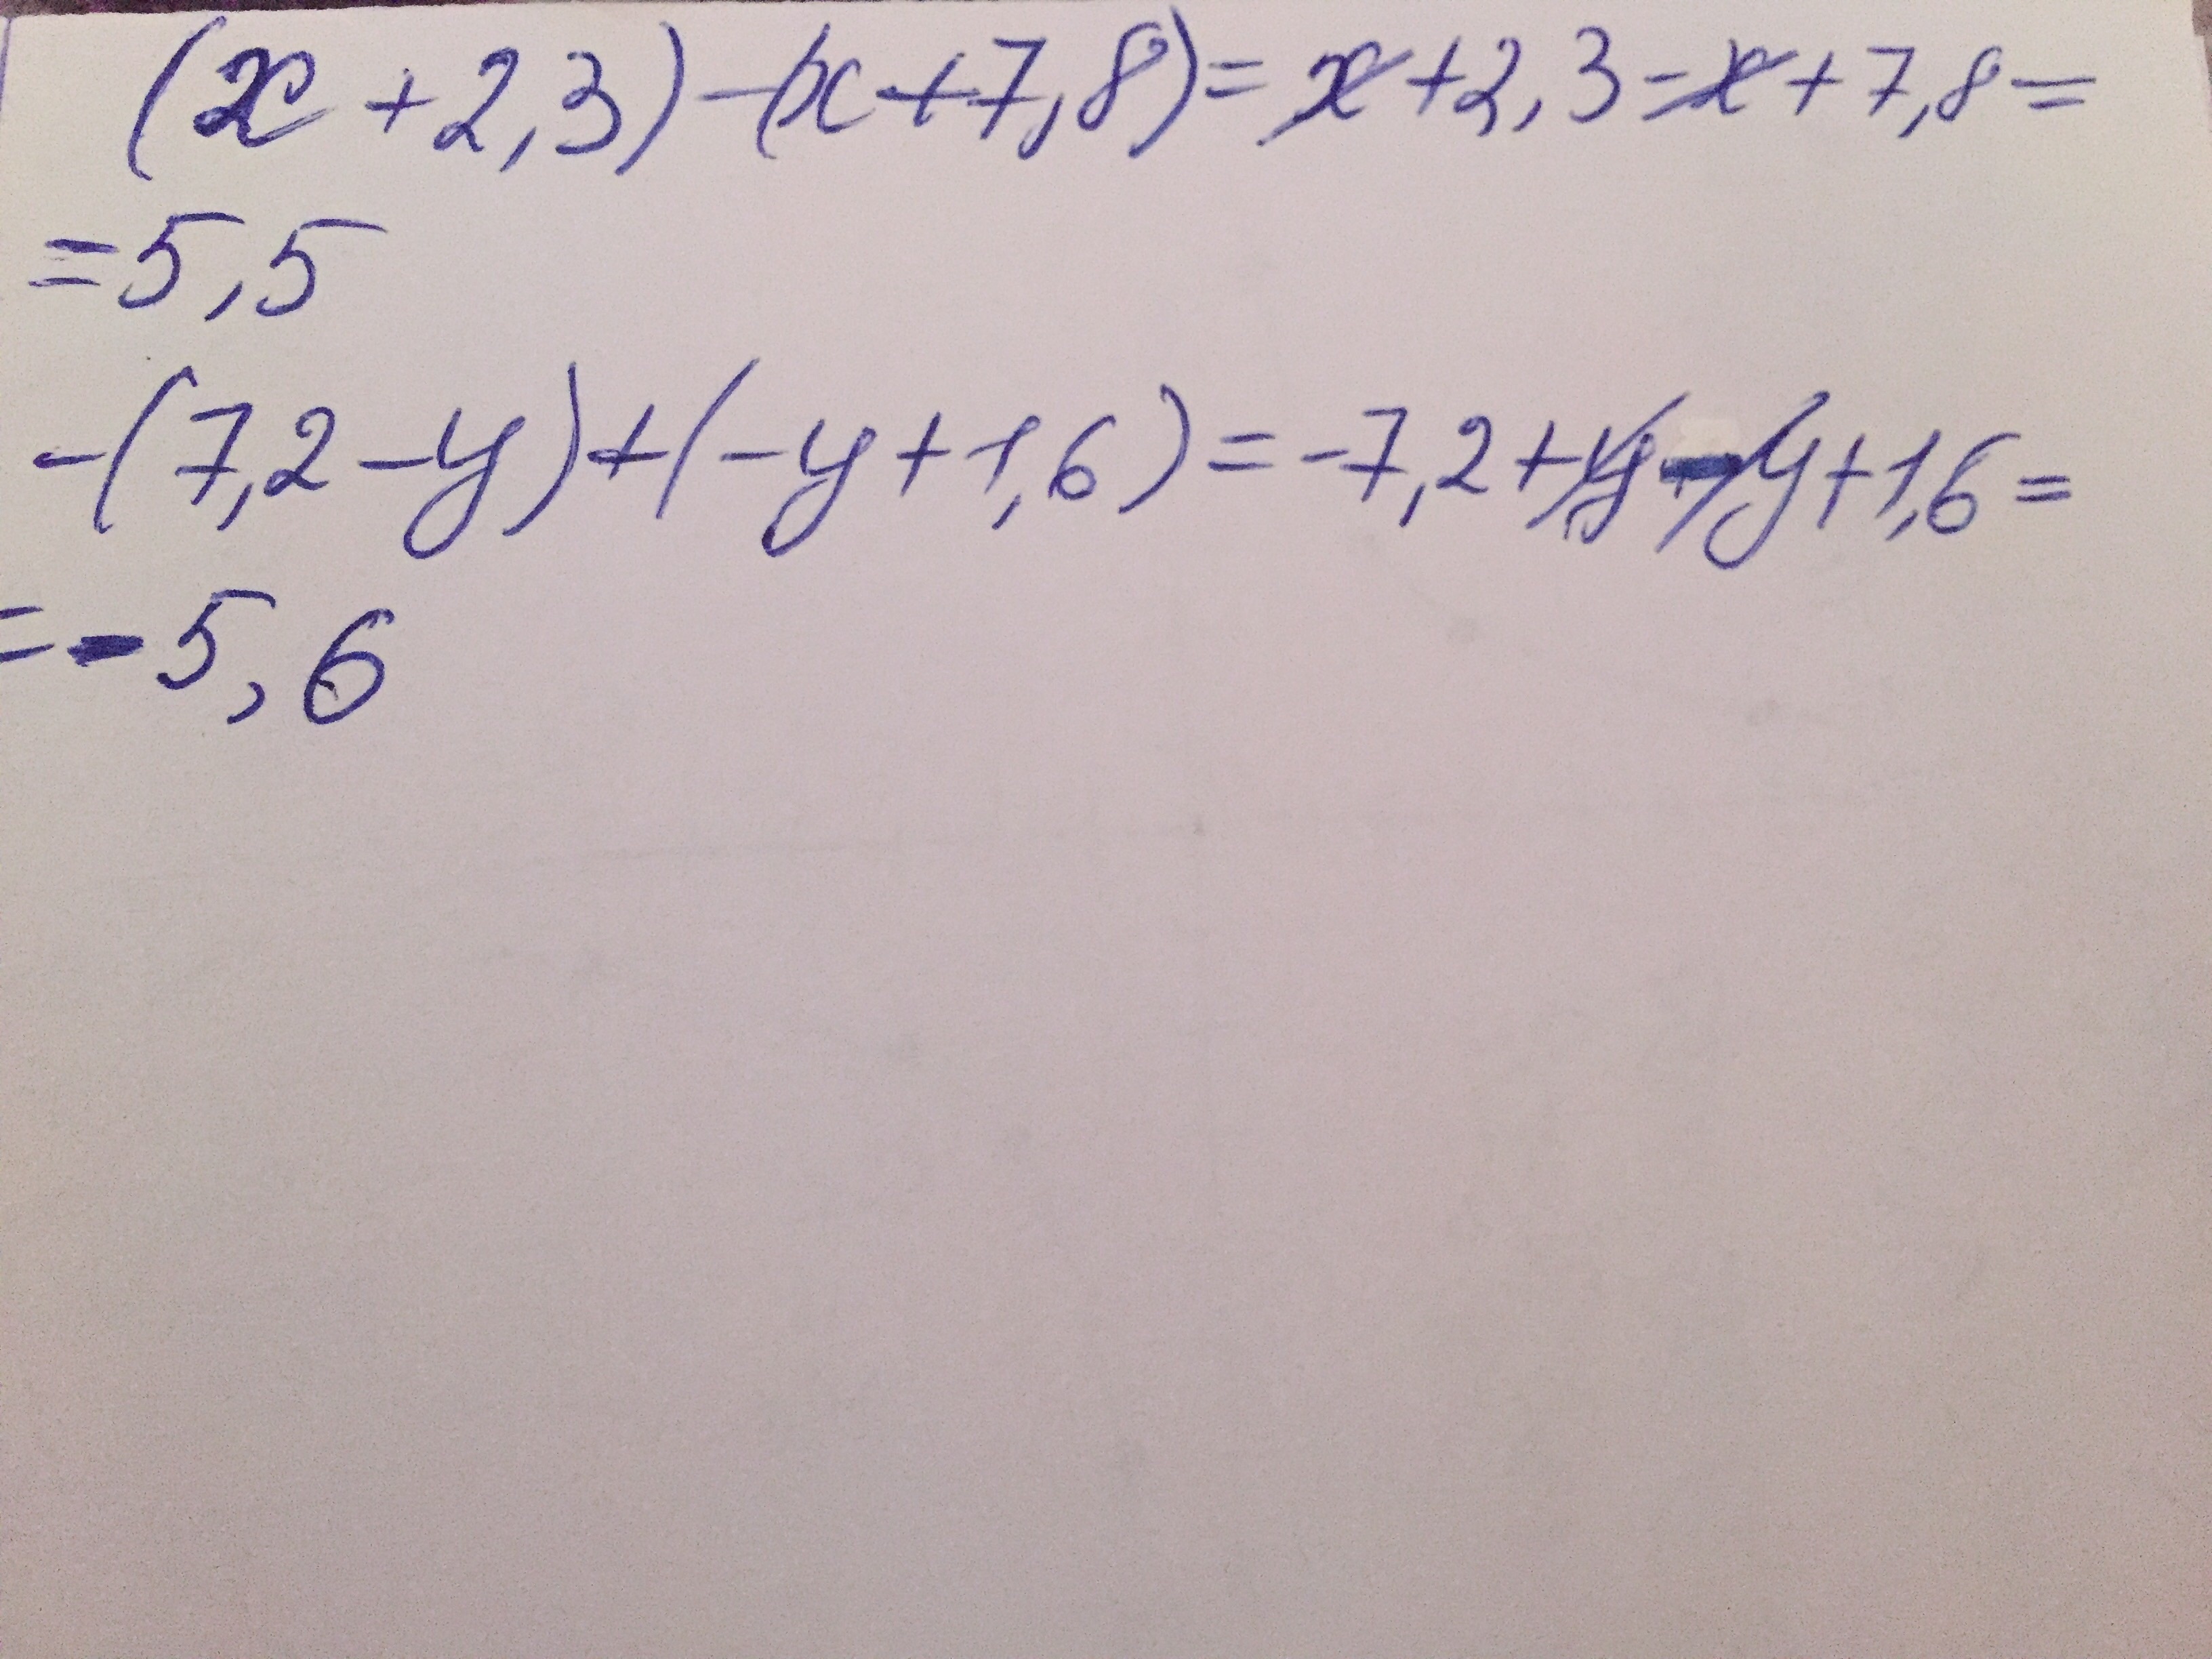 (x+2,3)-(x+7,8)=x+2,3-x+7,8=
=5,5
-(7,2-y)+(-y+1,6)=-7,2+y-y+1,6=
=-5,6